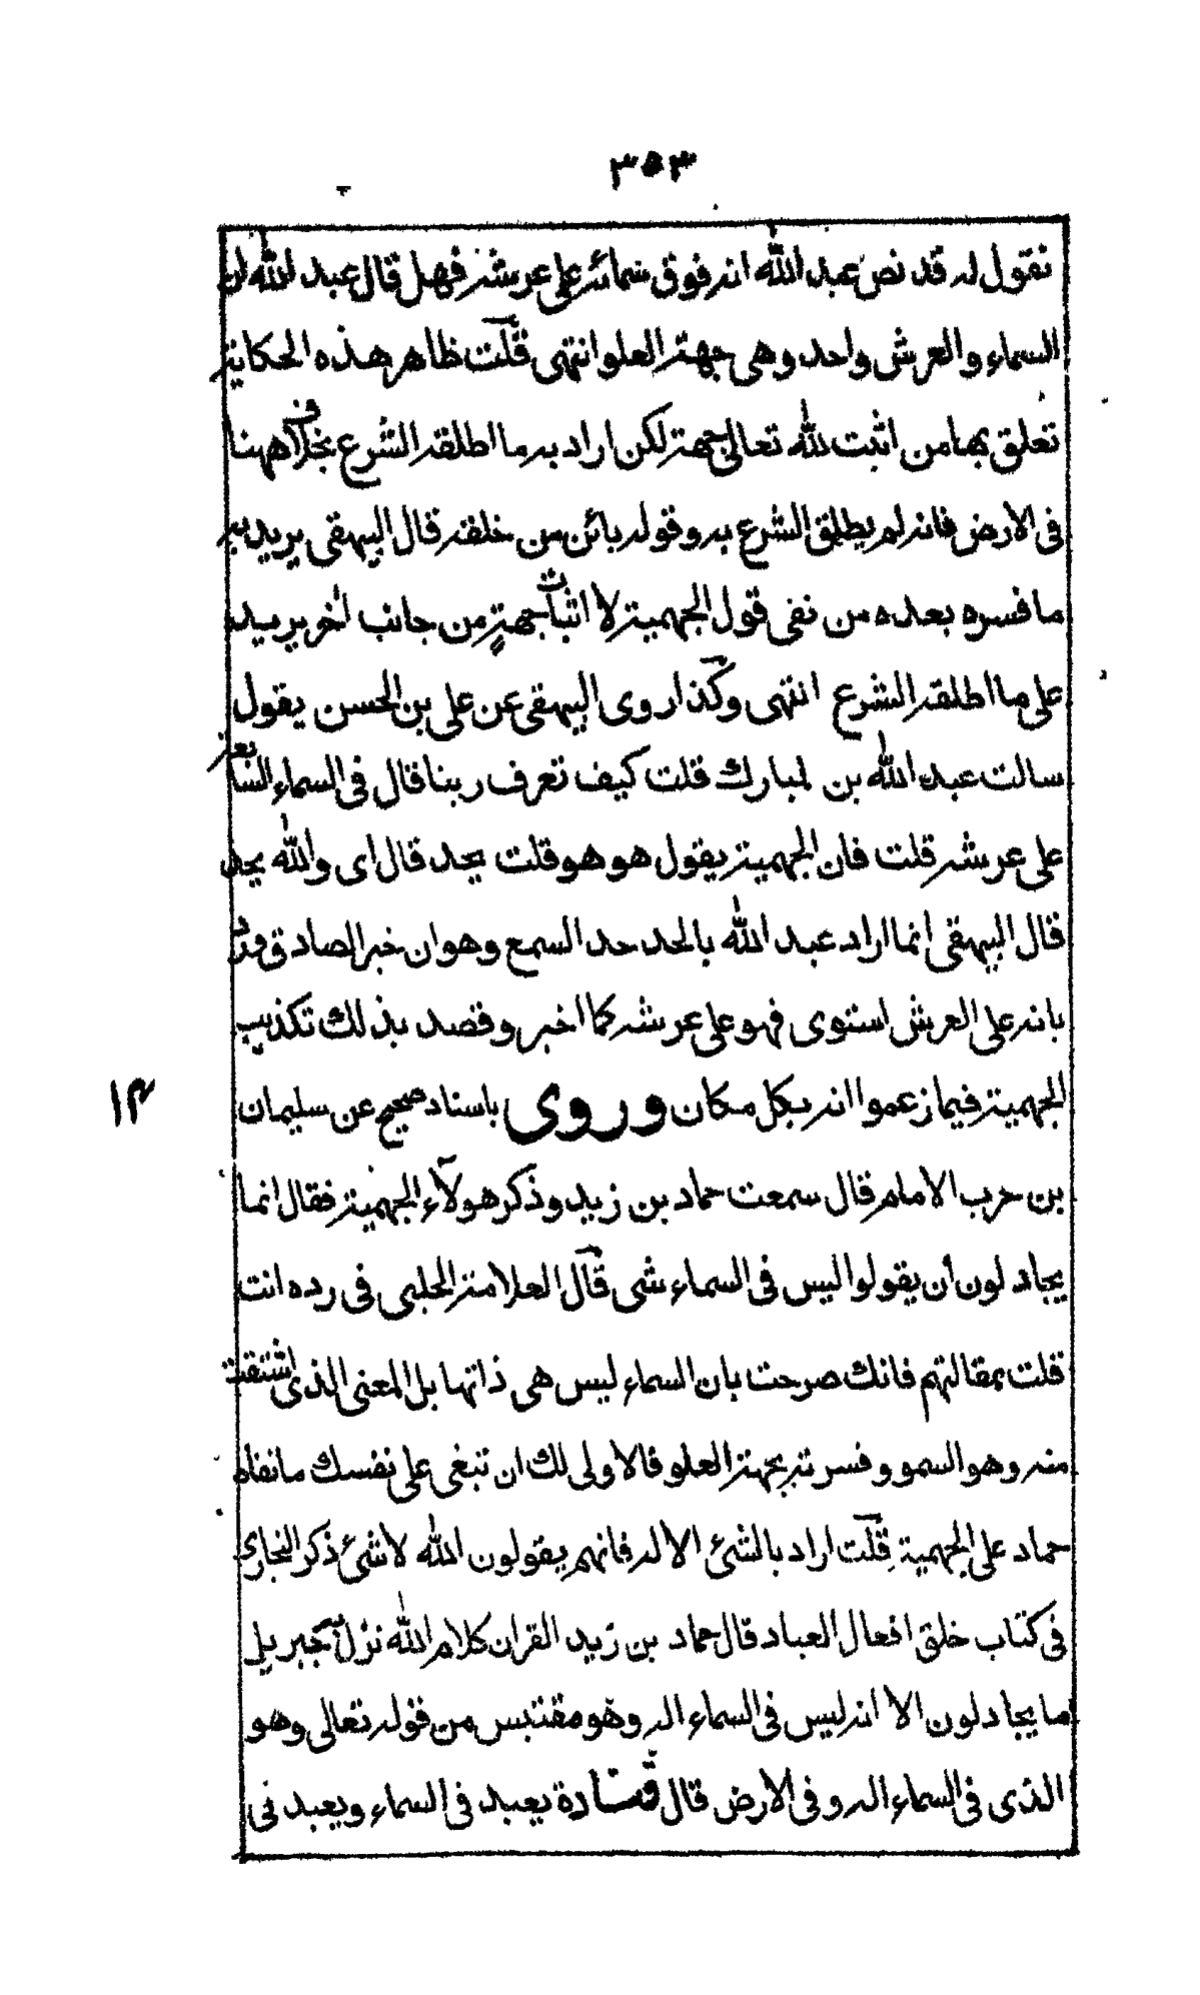 ٣٥٣
نقول له قد نص عبد الله انه فوق سمائه على عرشه فهل قال عبد الله ان
السماء والعرش واحد وهى جهة العلو انتهى قلت ظاهر هذه الحكاية
تعلق بها من اثبت لله تعالى جهة لكن اراد به ما اطلقه الشرع بخلاف ههنا
فى الارض فانه لم يطلق الشرع به وقوله بائن من خلقه قال البيهقى يريد به
ما فسره بعده من نفى قول الجهمية لا اثبات جهةٍ من جانب اخر يريد
على ما اطلقه الشرع انتهى وكذا روى البيهقى عن على بن الحسن يقول
سالت عبد الله بن لمبارك قلت كيف تعرف ربنا قال فى السماء السابعة
على عرشه قلت فان الجهمية يقول هو هو قلت بحد قال اى والله بحد
قال البيهقى انما اراد عبد الله بالحد حد السمع وهو ان خبر الصادق ورد
بانه على العرش استوى فهو على عرشه كما اخبر وقصد بذلك تكذيب
الجهمية فيما زعموا انه بكل مكان وروى باسناد صحيح عن سليمان
١٣
بن حرب الامام قال سمعت حماد بن زيد وذكر هولآء الجهمية فقال انما
يجادلون أن يقولوا ليس فى السماء شى قال العلامة الحلبى فى رده انت
قلت بمقالتهم فانك صرحت بان السماء ليس هى ذاتها بل المعنى الذى اشتقت
منه وهو السمو وفسرته بجهة العلو فالاولى لك ان تبغى على نفسك ما نفاه
حماد على الجهمية قلت اراد بالشئ الاله فانهم يقولون الله لا شئ ذكر البخارى
فى كتاب خلق افعال العباد قال حماد بن زيد القران كلام الله نزل به جبريل
ما يجادلون الا انه ليس فى السماء اله وهو مقتبس من قوله تعالى وهو
الذى فى السماء اله وفى الارض قال قتادة يعبد فى السماء ويعبد فى